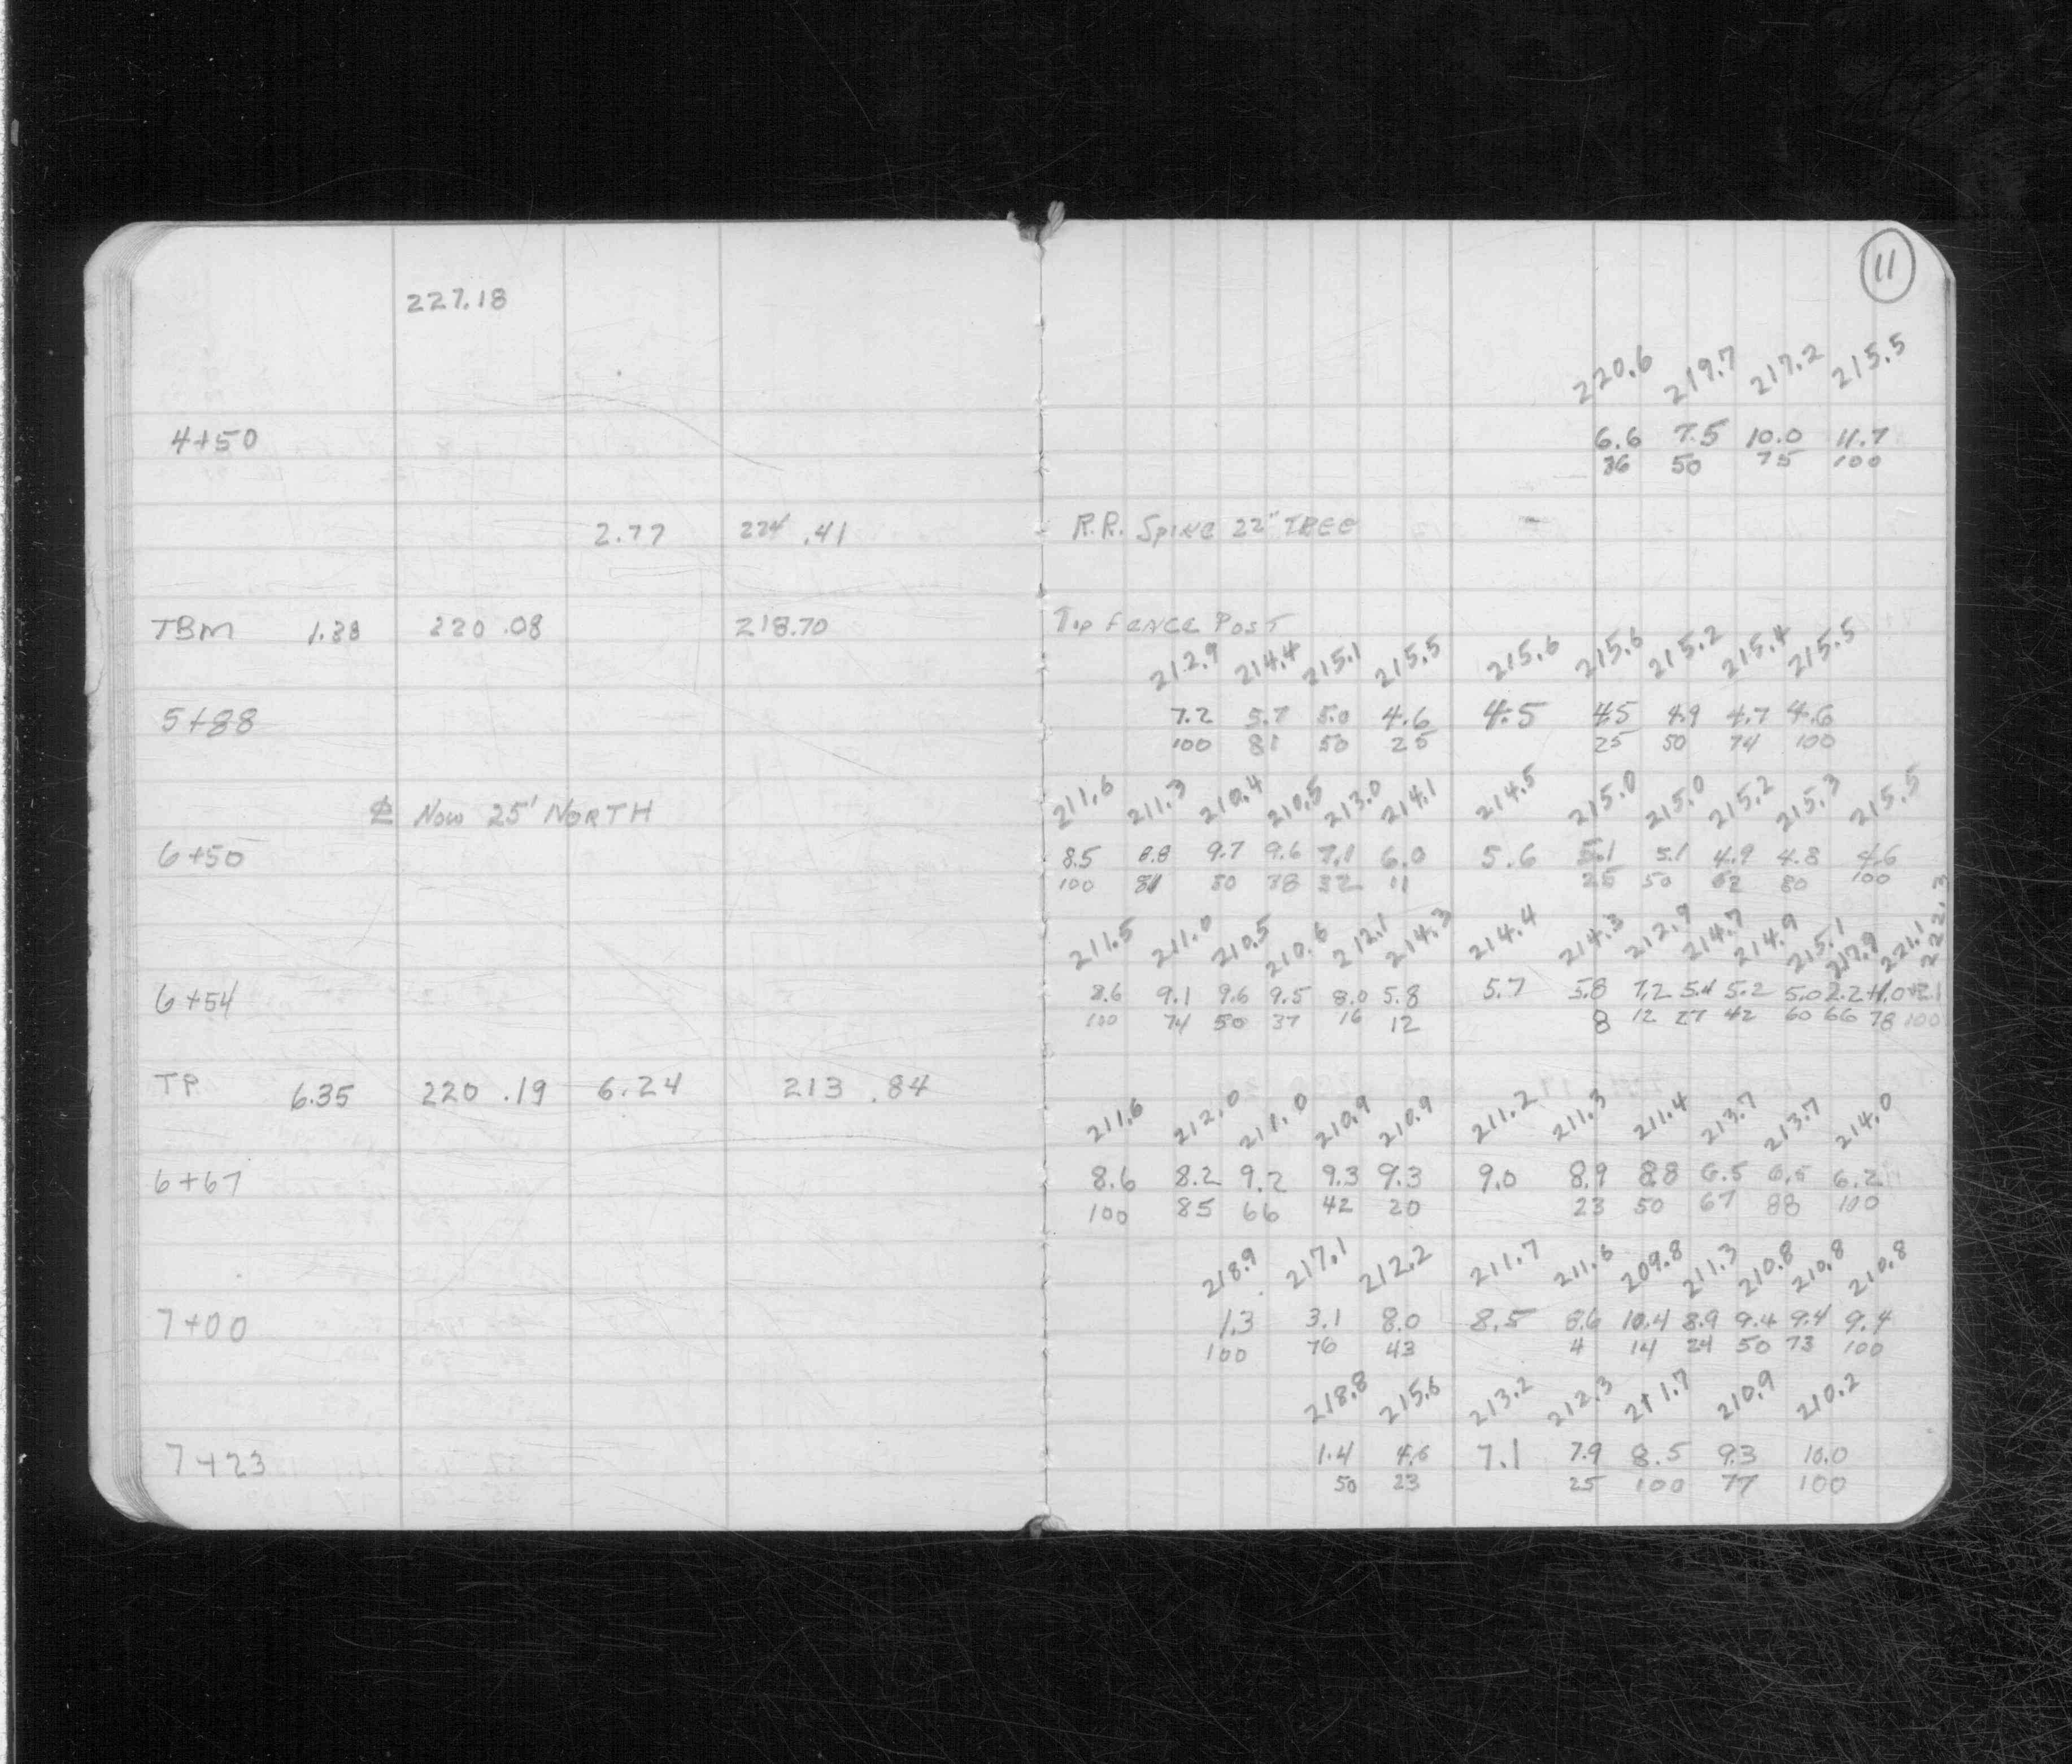 11
227.18
220.6 219.7 217.2 215.5
4+50 6.6 7.5 10.0 11.7
36 50 75 100
2.77 224.41 R.R. Spike 22" TREE
TBM 1.38 220.08 218.70 Top FENCE POST
212.9 214.4 215.1 215.5 215.6 215.6 215.2 215.4 215.5
5+88 7.2 5.7 5.0 4.6 4.5 4.5 4.9 4.7 4.6
100 81 50 25 25 50 74 100
℄ Now 25' NORTH
211.6 211.3 210.4 210.5 213.0 214.1 214.5 215.0 215.0 215.2 215.3 215.5
6+50 8.5 8.8 9.7 9.6 7.1 6.0 5.6 5.1 5.1 4.9 4.8 4.6
100 81 50 38 32 11 25 50 62 80 100
211.5 211.0 210.5 210.6 212.1 214.3 214.4 214.3 212.9 214.7 214.9 215.1 217.9 221.1 222.3
6+54 8.6 9.1 9.6 9.5 8.0 5.8 5.7 5.8 7.2 5.4 5.2 5.0 2.2 +1.0 +2.1
100 74 50 37 16 12 8 12 27 42 60 66 78 100
TP 6.35 220.19 6.24 213.84
211.6 212.0 211.0 210.9 210.9 211.2 211.3 211.4 213.7 213.7 214.0
6+67 8.6 8.2 9.2 9.3 9.3 9.0 8.9 8.8 6.5 6.5 6.2
100 85 66 42 20 23 50 67 88 100
218.9 217.1 212.2 211.7 211.6 209.8 211.3 210.8 210.8 210.8
7+00 1.3 3.1 8.0 8.5 8.6 10.4 8.9 9.4 9.4 9.4
100 76 43 4 14 24 50 73 100
218.8 215.6 213.2 212.3 211.7 210.9 210.2
7+23 1.4 4.6 7.1 7.9 8.5 9.3 10.0
50 23 25 100 77 100